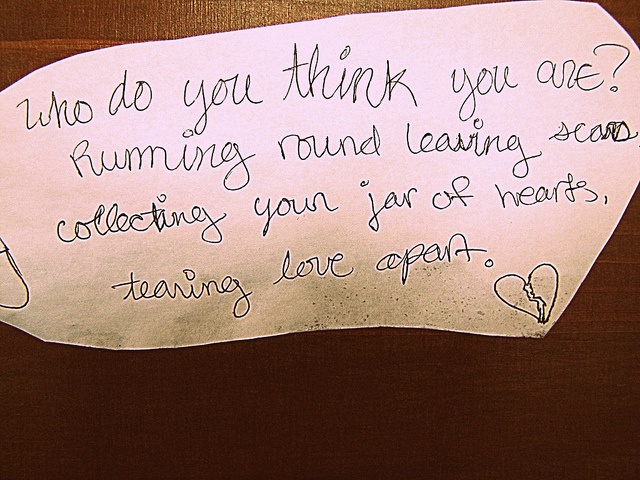 who do you think you are?
Running round leaving scars,
collecting your jar of hearts,
tearing love apart.